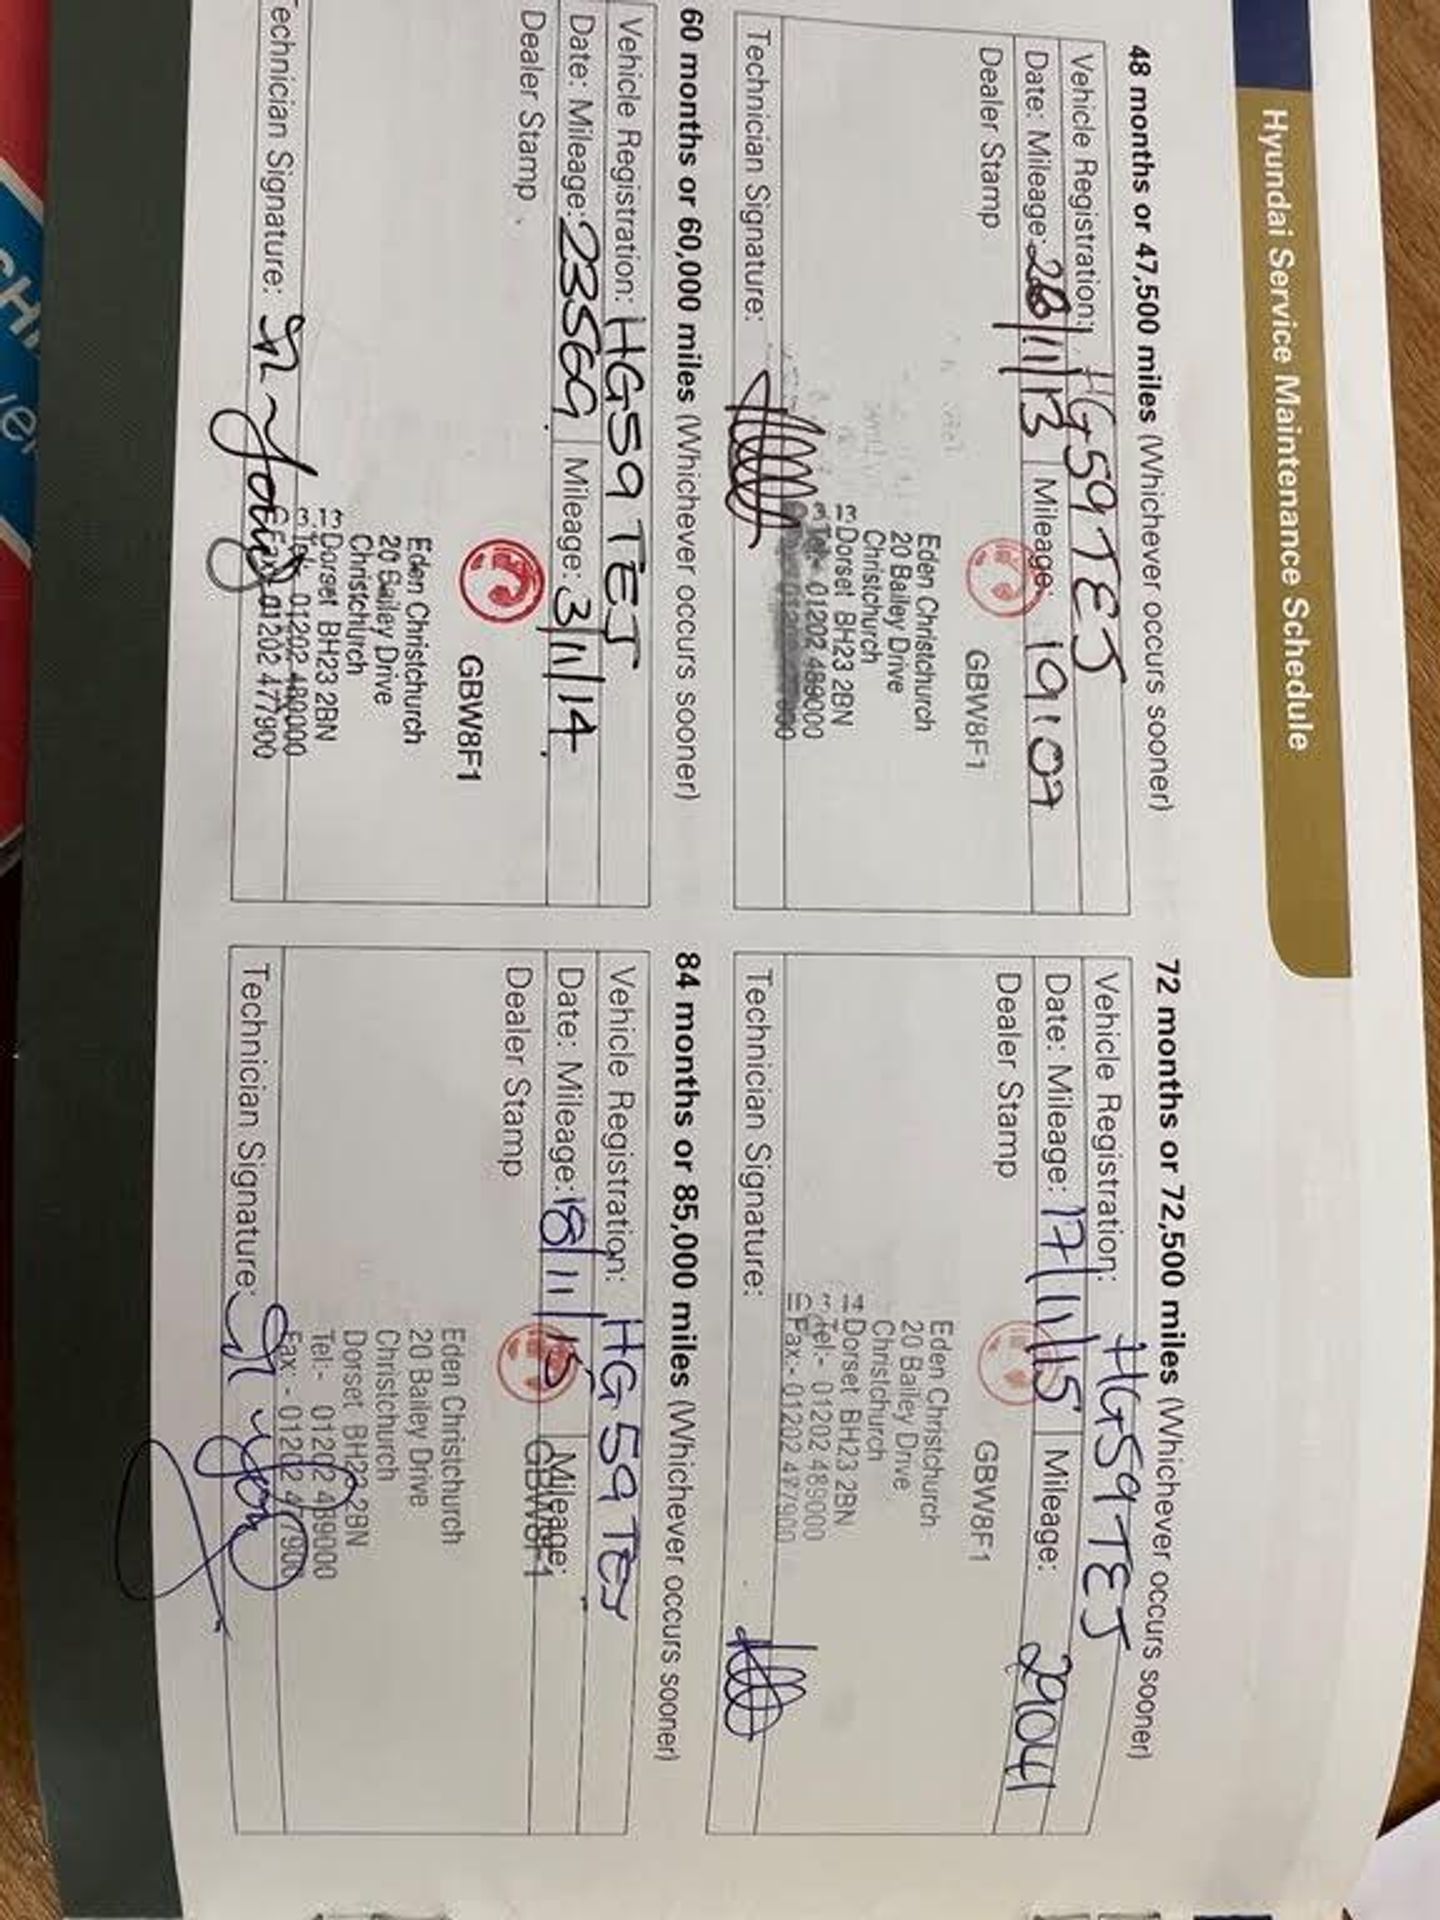 Hyundai Service Maintenance Schedule
48 months or 47,500 miles (Whichever occurs sooner)
Vehicle Registration: HG59TEJ
Date: Mileage: 28/11/13 Mileage: 19107
Dealer Stamp
GBW8F1
Eden Christchurch
20 Bailey Drive
Christchurch
Dorset BH23 2BN
Tel:- 01202 489000
Technician Signature:
60 months or 60,000 miles (Whichever occurs sooner)
Vehicle Registration: HG59 TEJ
Date: Mileage: 23569 Mileage: 3/11/14
Dealer Stamp
GBW8F1
Eden Christchurch
20 Bailey Drive
Christchurch
Dorset BH23 2BN
01202 489000
Fax 01202 477900
echnician Signature:
72 months or 72,500 miles (Whichever occurs sooner)
Vehicle Registration: HG59TEJ
Date: Mileage: 17/11/15 Mileage: 29041
Dealer Stamp
GBW8F1
Eden Christchurch
20 Bailey Drive
Christchurch
Dorset BH23 2BN
Tel:- 01202 489000
Fax:- 01202 477900
Technician Signature:
84 months or 85,000 miles (Whichever occurs sooner)
Vehicle Registration: HG59 TEJ
Date: Mileage: 18/11/ Mileage:
Dealer Stamp
GBW8F1
Eden Christchurch
20 Bailey Drive
Christchurch
Dorset BH23 2BN
Tel:- 01202 489000
Fax:- 01202 477900
Technician Signature: